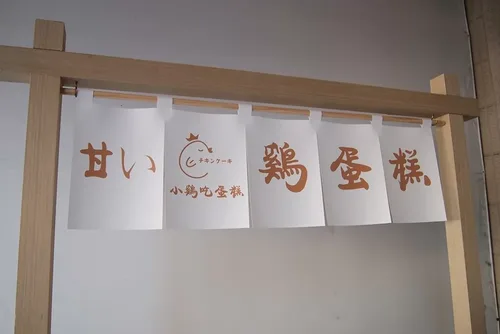 甘い
チキンケーキ
小鶏吃蛋糕
鶏蛋糕